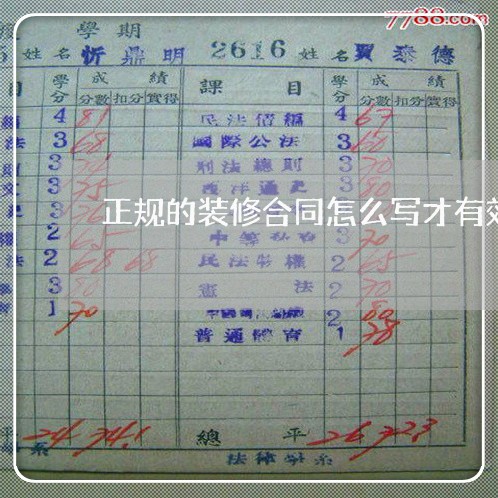 7788.com
學期
姓名 忻鼎明 2616 姓名 賈泰德
目 學分 成績 課目 學分 成績
分數 扣分 實得 分數 扣分 實得
4 81 民法債編 4 67
法 3 68 國際公法 3 60
3 刑法總則 3 70
3 75 西洋通史 3 80
正规的装修合同怎么写才有效
2 65 3 70
法 2 68 68 民法物權 2 65
3 80 憲法 2 70
1 70 2 80
普通體育 1 78
平 24 74.1 總平 26 72.3
系 法律學系